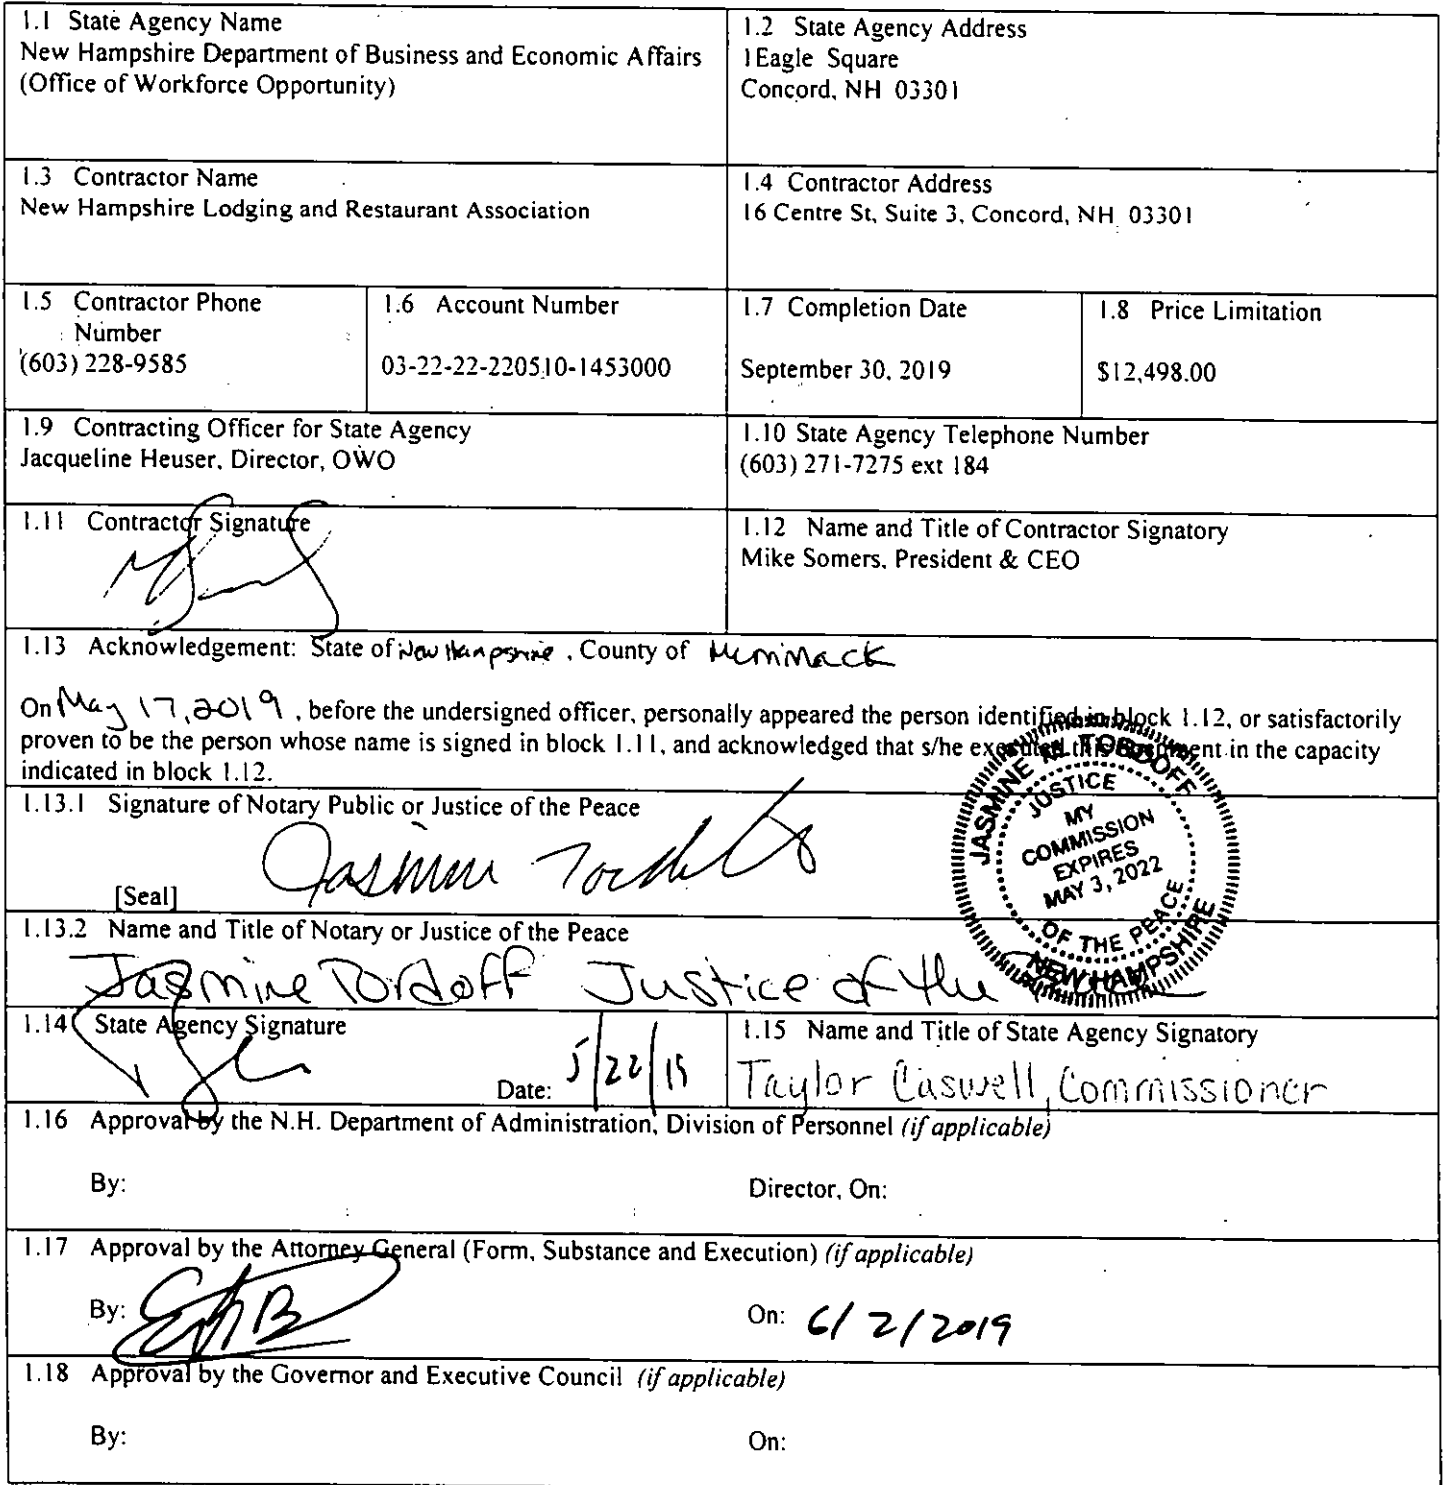 1.1 State Agency Name
New Hampshire Department of Business and Economic Affairs
(Office of Workforce Opportunity)
1.2 State Agency Address
1Eagle Square
Concord, NH 03301
1.3 Contractor Name
New Hampshire Lodging and Restaurant Association
1.4 Contractor Address
16 Centre St, Suite 3, Concord, NH 03301
1.5 Contractor Phone
Number
(603) 228-9585
1.6 Account Number
03-22-22-220510-1453000
1.7 Completion Date
September 30, 2019
1.8 Price Limitation
$12,498.00
1.9 Contracting Officer for State Agency
Jacqueline Heuser, Director, OWO
1.10 State Agency Telephone Number
(603) 271-7275 ext 184
1.11 Contractor Signature
1.12 Name and Title of Contractor Signatory
Mike Somers, President & CEO
1.13 Acknowledgement: State of New Hampshire, County of Merrimack
On May 17, 2019, before the undersigned officer, personally appeared the person identified in block 1.12, or satisfactorily
proven to be the person whose name is signed in block 1.11, and acknowledged that s/he executed this document in the capacity
indicated in block 1.12.
1.13.1 Signature of Notary Public or Justice of the Peace
Jasmine Tordoff
[Seal]
JASMINE M. TORDOFF
JUSTICE
MY
COMMISSION
EXPIRES
MAY 3, 2022
OF THE PEACE
NEW HAMPSHIRE
1.13.2 Name and Title of Notary or Justice of the Peace
Jasmine Tordoff Justice of the Peace
1.14 State Agency Signature
Date: 5/22/19
1.15 Name and Title of State Agency Signatory
Taylor Caswell, Commissioner
1.16 Approval by the N.H. Department of Administration, Division of Personnel (if applicable)
By:
Director, On:
1.17 Approval by the Attorney General (Form, Substance and Execution) (if applicable)
By:
On: 6/2/2019
1.18 Approval by the Governor and Executive Council (if applicable)
By:
On: